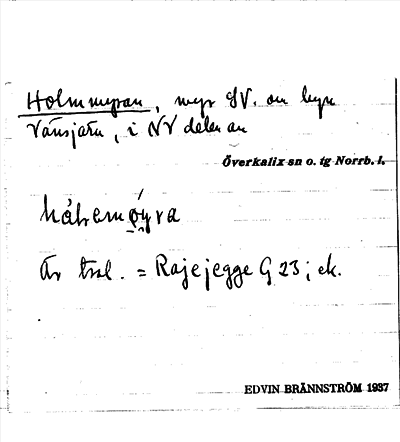 Holmmyran, myr SV. om byn
Vänsjärv, i NV delen av
Överkalix sn o. tg Norrb. l.
är trol. = Rajejegge G 23; ek.
EDVIN BRÄNNSTRÖM 1937